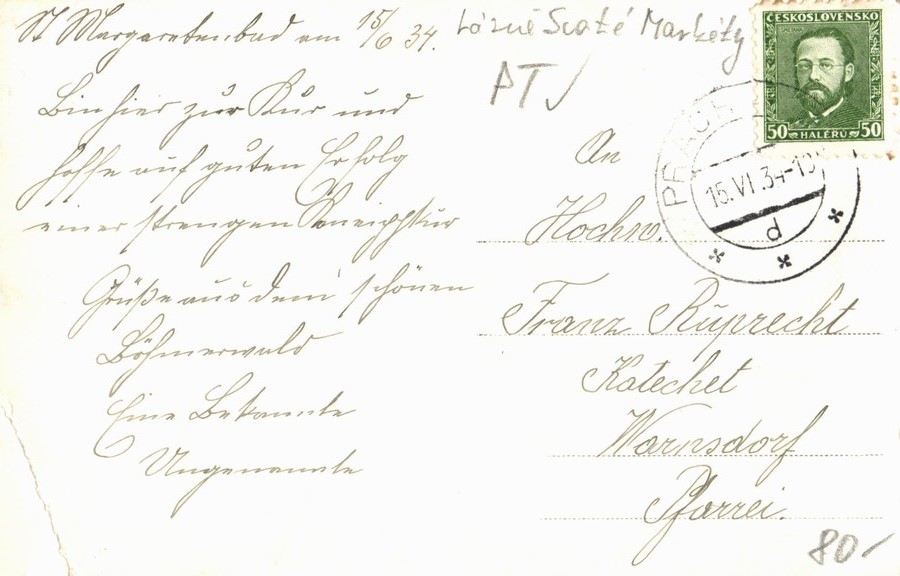 St Margaretenbad am 15/6 34.
Lázně Svaté Markéty
PT
Bin hier zur Kur und
hoffe auf guten Erfolg
einer strengen Kneippkur
Grüße aus dem schönen
Böhmerwald
Eine Bekannte
Ungenannte
ČESKOSLOVENSKO
50 HALÉŘŮ 50
PRACH
15.VI.34-1
d
An
Hochw.
Franz Ruprecht
Katechet
Warnsdorf
Pfarrei.
80,-